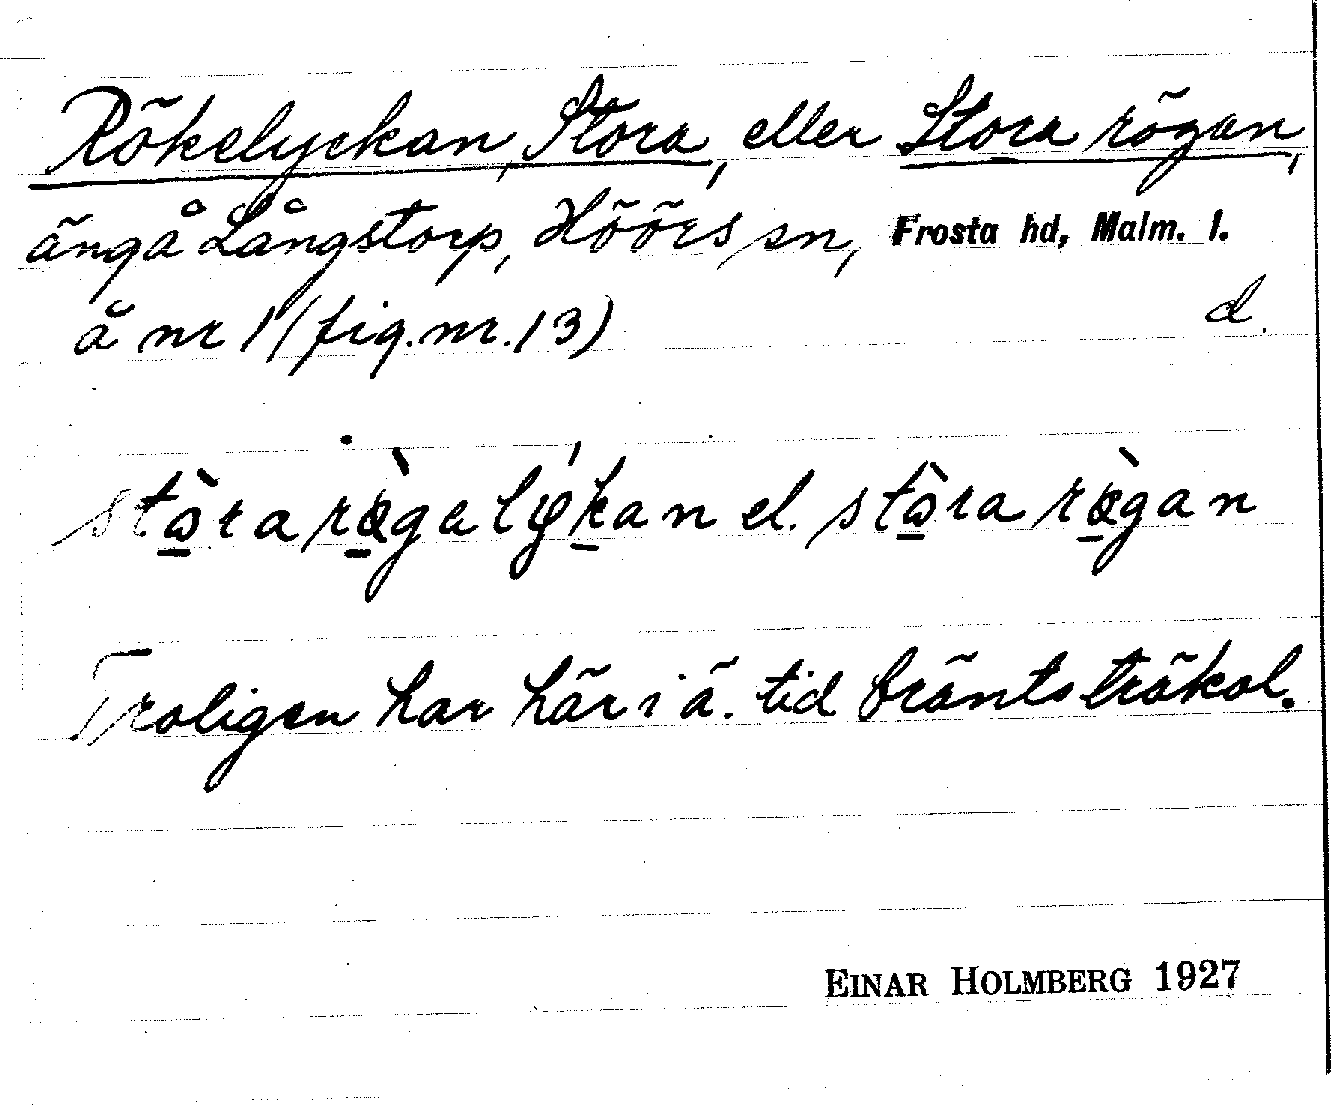 Rökelyckan, Stora, eller Stora rögan,
äng å Långstorp, Höörs sn, Frosta hd, Malm. l.
å nr 1 (fig. nr. 13) d.
el.
Troligen har här i ä. tid bränts träkol.
EINAR HOLMBERG 1927